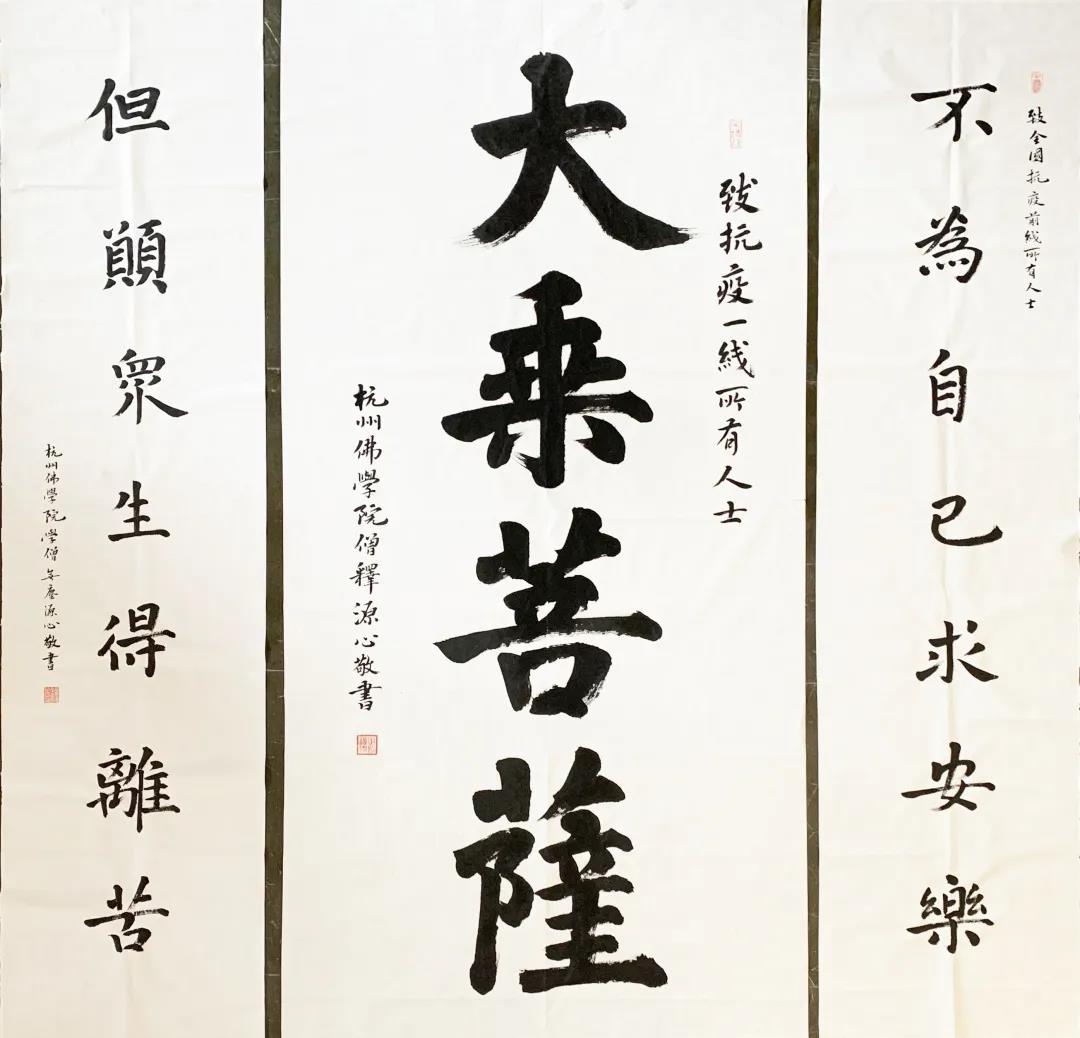 致全國抗疫前綫所有人士
不為自己求安樂
致抗疫一綫所有人士
大乘菩薩
杭州佛學院僧釋源心敬書
但願眾生得離苦
杭州佛學院學僧源心敬書